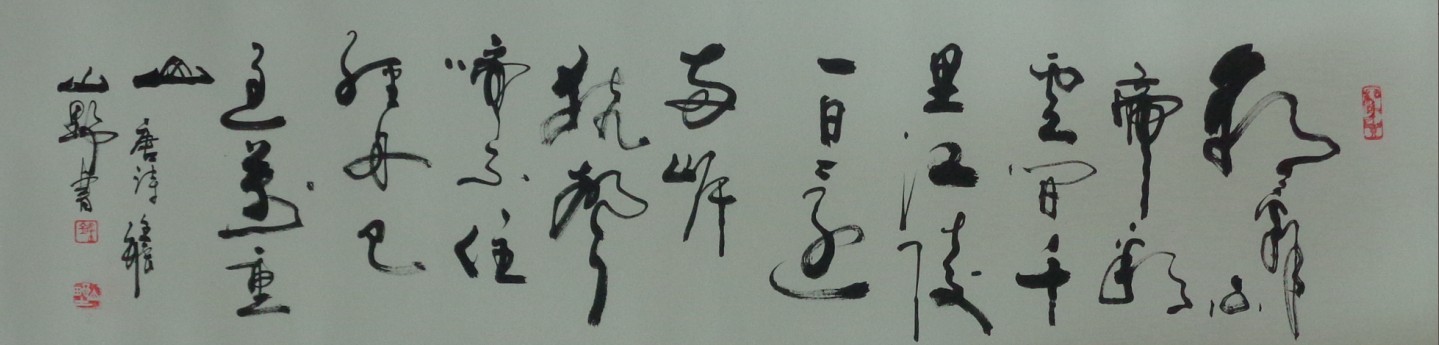 朝辭白
帝彩
雲間千
里江陵
一日還
兩岸
猿聲
啼不住
輕舟已
過萬重
山 唐詩
山野書